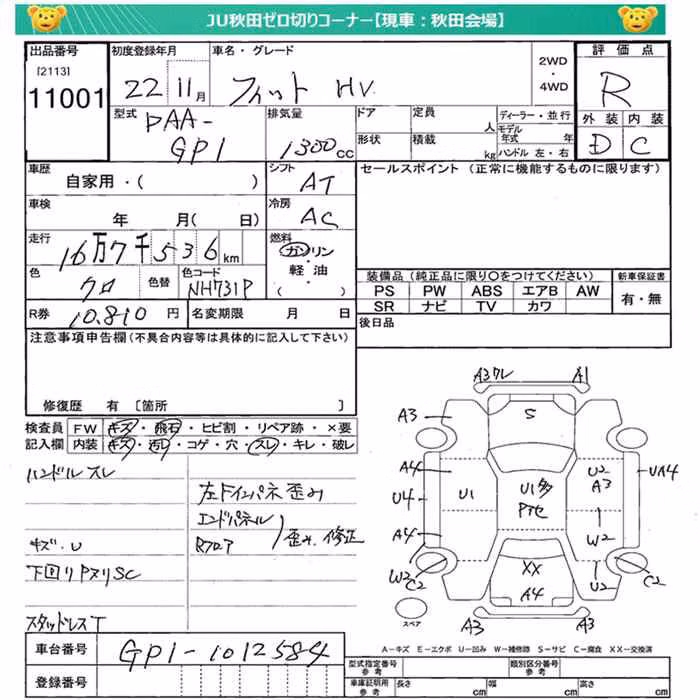 JU秋田ゼロ切りコーナー【現車：秋田会場】
出品番号 初度登録年月 車名・グレード 2WD・4WD 評価点
[2113]
11001 22 11月 フィット HV. R
型式 排気量 ドア 定員 人 ディーラー・並行 外装 内装
DAA- 形状 積載 kg モデル年式 年
GP1 1300cc ハンドル 左・右 D C
車歴 シフト セールスポイント（正常に機能するものに限ります）
自家用・( ) AT
車検 冷房
年 月( 日) AC
走行 燃料
16万7千536km ガソリン・軽油・( )
色 色替 色コード 装備品（純正品に限り○をつけてください） 新車保証書
クロ NH731P PS PW ABS エアB AW 有・無
SR ナビ TV カワ
R券 10,810 円 名変期限 月 日 後日品
注意事項申告欄（不具合内容等は具体的に記入して下さい）
修復歴 有 [箇所 ]
検査員 FW キズ・飛石・ヒビ割・リペア跡・×要
記入欄 内装 キズ・汚レ・コゲ・穴・スレ・キレ・破レ
ハンドル スレ
左ドインパネ歪み
エンドパネル
Rフロア 歪み、修正
キズ・U
下回りPヌリSC
スタッドレスT
A3ワレ A1
A3 S
A4 U2 A3 UA4
U4 U1 U1多 Pセ
A4 W2
W2 C2 XX U2 C2
A4
スペア A3 A3
A－キズ E－エクボ U－凹み W－補修跡 S－サビ C－腐食 XX－交換済
車台番号 GP1-1012584
登録番号
型式指定番号 参考 類別区分番号 参考
車庫証明用 参考 長さ cm 幅 cm 高さ cm